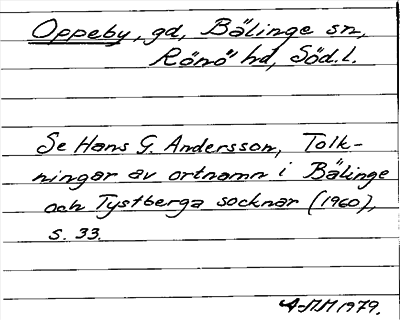 Oppeby, gd, Bälinge sn,
Rönö hd, Söd.l.
Se Hans G. Andersson, Tolk-
ningar av ortnamn i Bälinge
och Tystberga socknar (1960),
s. 33.
1979.